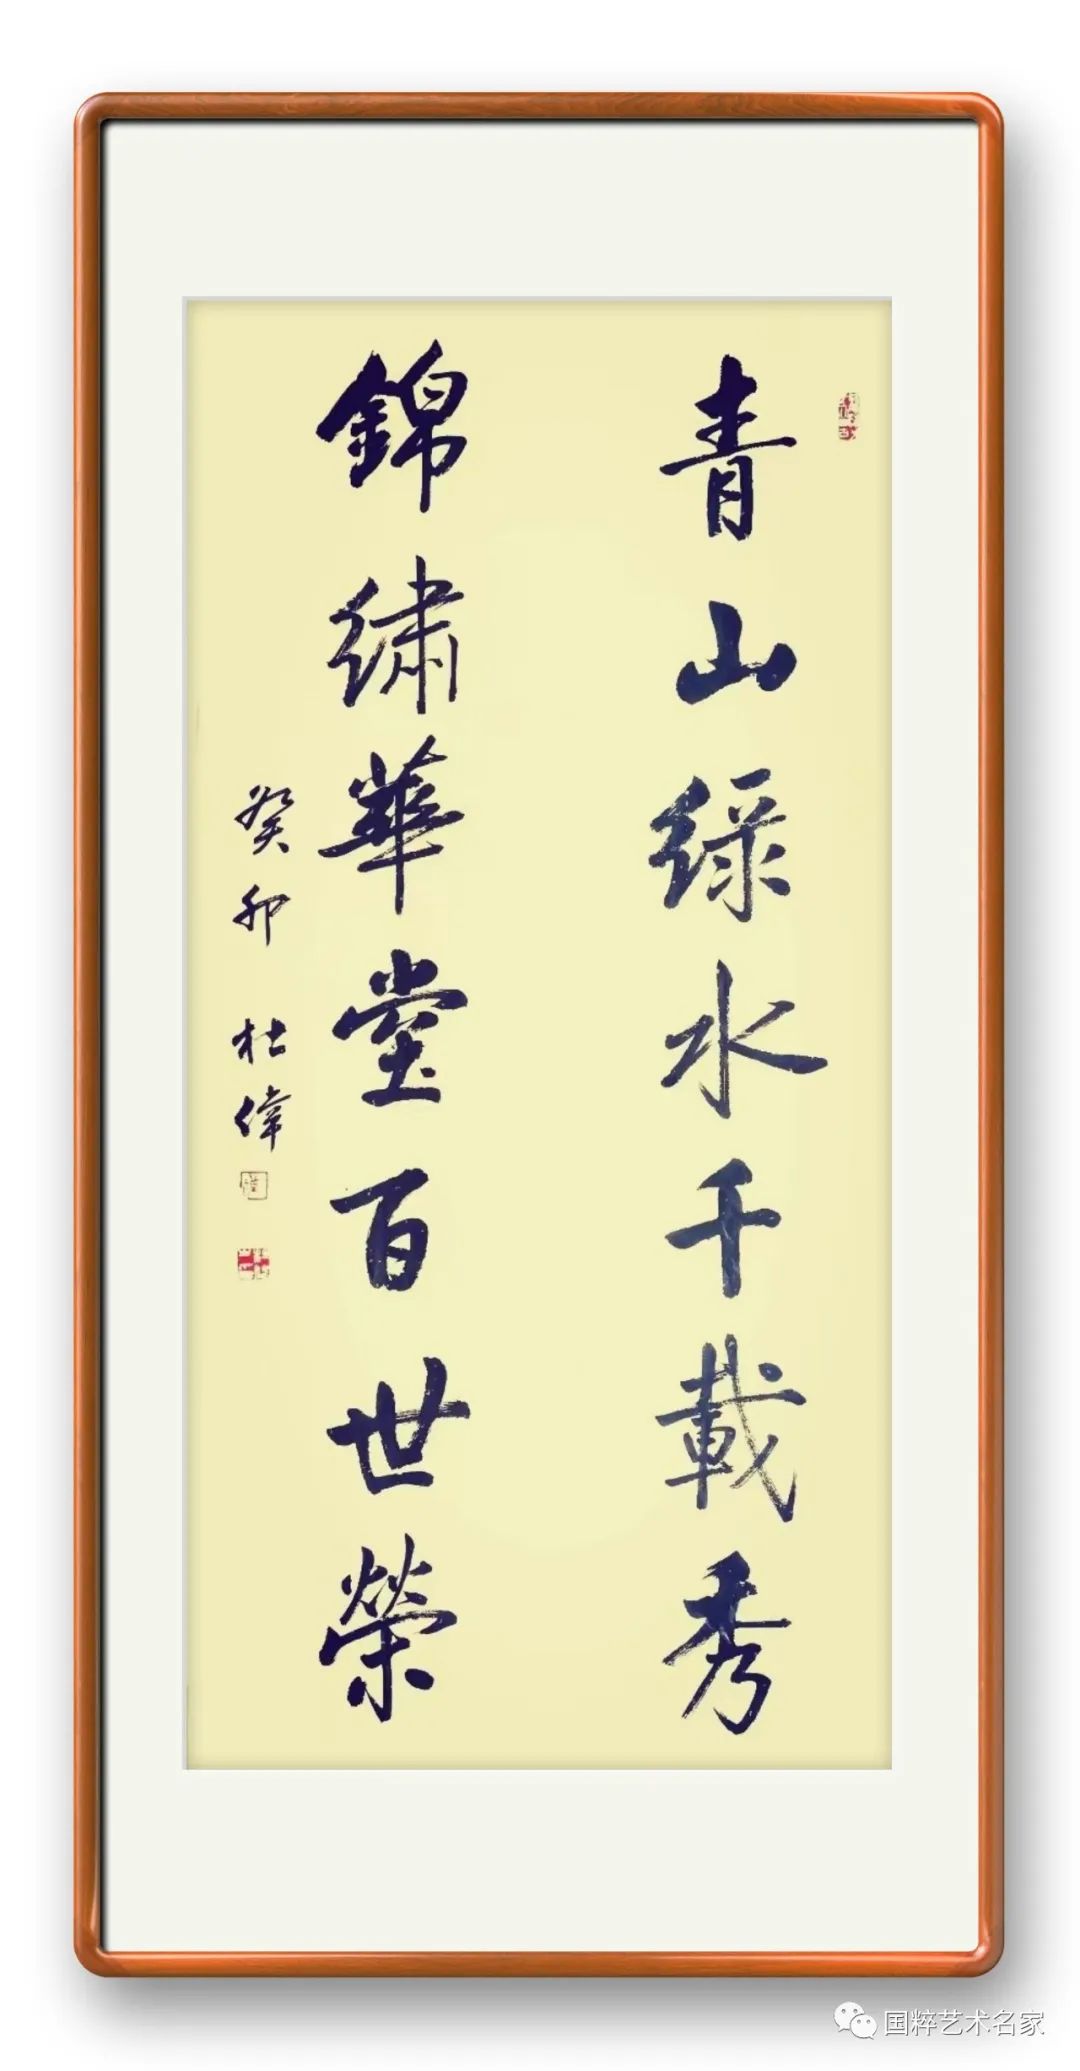 青山綠水千載秀
錦繡華堂百世榮
癸卯 杜偉
国粹艺术名家